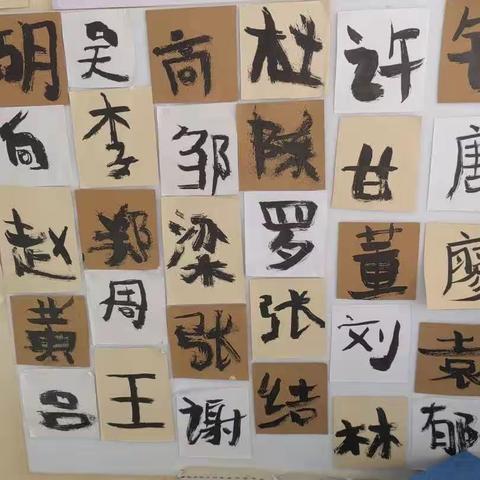 胡 吴 高 杜 许
向 李 邹 陈 甘 唐
赵 郑 梁 罗 董 廖
黄 周 张 张 刘 袁
吕 王 谢 结 林 郁